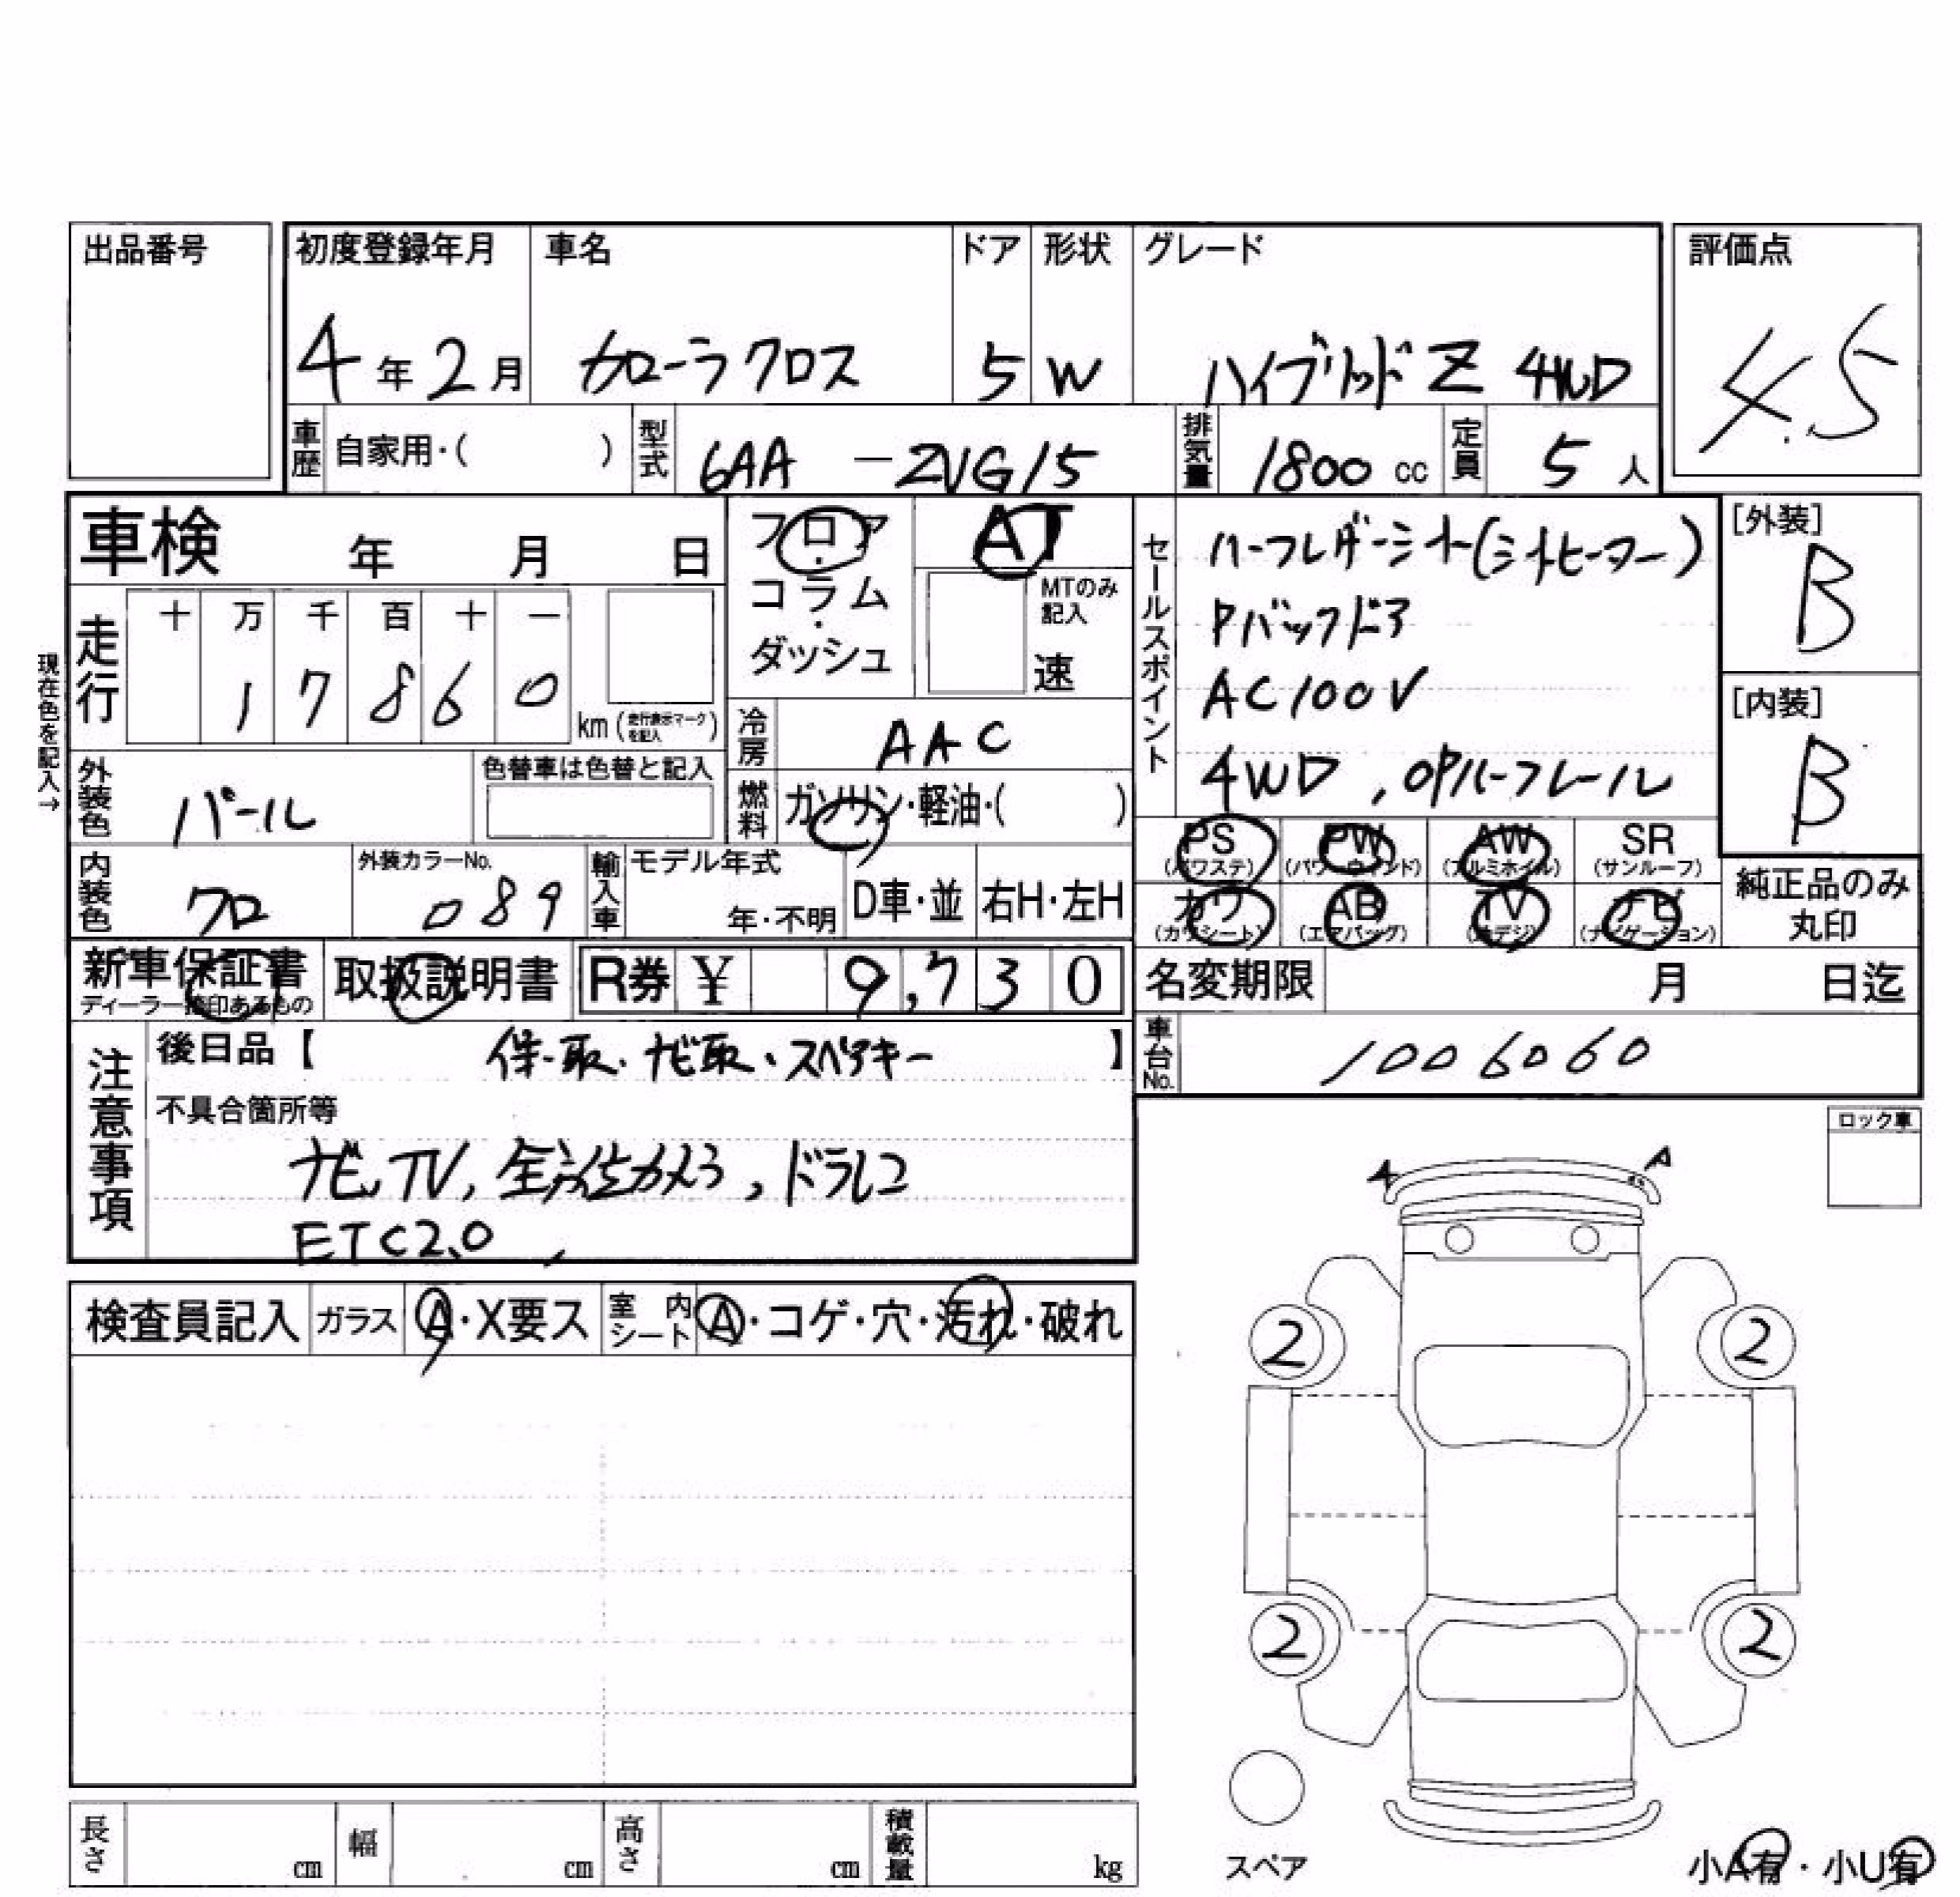 出品番号
初度登録年月 車名 ドア 形状 グレード 評価点
4年2月 カローラクロス 5 W ハイブリッド Z 4WD 4.5
車歴 自家用・( ) 型式 6AA - ZVG15 排気量 1800 cc 定員 5 人
車検 年 月 日
フロア・コラム・ダッシュ
AT
MTのみ記入
速
セールスポイント
ハーフレザーシート(シートヒーター)
Pバックドア
AC100V
4WD , OPルーフレール
[外装]
B
[内装]
B
現在色を記入→
走行 十 万 千 百 十 一
1 7 8 6 0
km (走行表示マークを記入)
冷房 AAC
外装色 パール 色替車は色替と記入
燃料 ガソリン・軽油・( )
PS PW AW SR
(パワステ) (パワーウィンド) (アルミホイル) (サンルーフ)
カワ AB TV ナビ
(カワシート) (エアバッグ) (地デジ) (ナビゲーション)
純正品のみ
丸印
内装色 クロ 外装カラーNo. 089 輸入車 モデル年式 年・不明 D車・並 右H・左H
新車保証書 取扱説明書 R券 ¥ 9,730
ディーラー捺印あるもの
名変期限 月 日迄
車台No. 1006060
注意事項
後日品【 保・取・ナビ取・スペアキー 】
不具合箇所等
ナビ,TV, 全方位カメラ, ドラレコ
ETC2.0 ,
ロック車
A A
検査員記入 ガラス A・X要ス 室内シート A・コゲ・穴・汚れ・破れ
2 2
2 2
長さ cm 幅 cm 高さ cm 積載量 kg
スペア
小A有・小U有